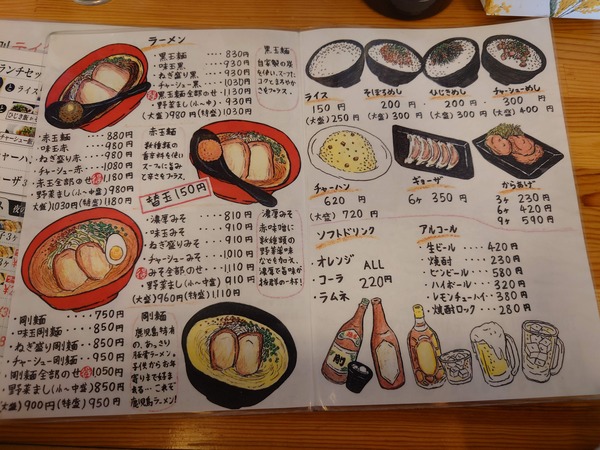 ラーメン
・黒玉麺 ― 830円
・味玉黒 ― 930円
・ねぎ盛り黒 ― 930円
・チャーシュー黒 ― 1030円
・黒玉麺全部のせ ― 1130円
・野菜まし(小〜中) 930円
(大盛)980円 (特盛)1030円
黒玉麺
自家製の炭を使い、スープにコクとまろやかさをプラス。
赤玉麺 ― 880円
・味玉赤 ― 980円
・ねぎ盛り赤 ― 980円
・チャーシュー赤 ― 1080円
・赤玉全部のせ 1180円
・野菜まし(小〜中) 980円
(大盛)1030円 (特盛)1180円
赤玉麺
数種類の香辛料を使いスープに旨味と辛さをプラス。
替玉 150円
・濃厚みそ ― 810円
・味玉みそ ― 910円
・ねぎ盛りみそ ― 910円
・チャーシューみそ ― 1010円
・みそ全部のせ ― 1110円
・野菜まし(小〜中) 910円
(大盛)960円 (特盛)1110円
濃厚みそ
赤味噌に数種類の
・剛麺 ― 750円
・味玉剛麺 ― 850円
・ねぎ盛り剛麺 ― 850円
・チャーシュー剛麺 ― 950円
・剛麺全部のせ 1050円
・野菜まし(小〜中) 850円
(大盛)900円 (特盛)950円
剛麺
鹿児島特有の、あっさり豚骨ラーメン。子供からお年寄りまで好まれる…これぞ鹿児島ラーメン!
ライス
150円
(大盛)250円
そぼろめし
200円
(大盛)300円
ひじきめし
200円
(大盛)300円
チャーシューめし
300円
(大盛)400円
チャーハン
620円
(大盛)720円
ギョーザ
6ヶ 350円
からあげ
3ヶ 230円
6ヶ 420円
9ヶ 590円
ソフトドリンク
・オレンジ
・コーラ
・ラムネ
ALL
220円
アルコール
・生ビール ― 420円
・焼酎 ― 230円
・ビンビール ― 580円
・ハイボール ― 320円
・レモンチューハイ ― 380円
・焼酎ロック ― 280円
剛